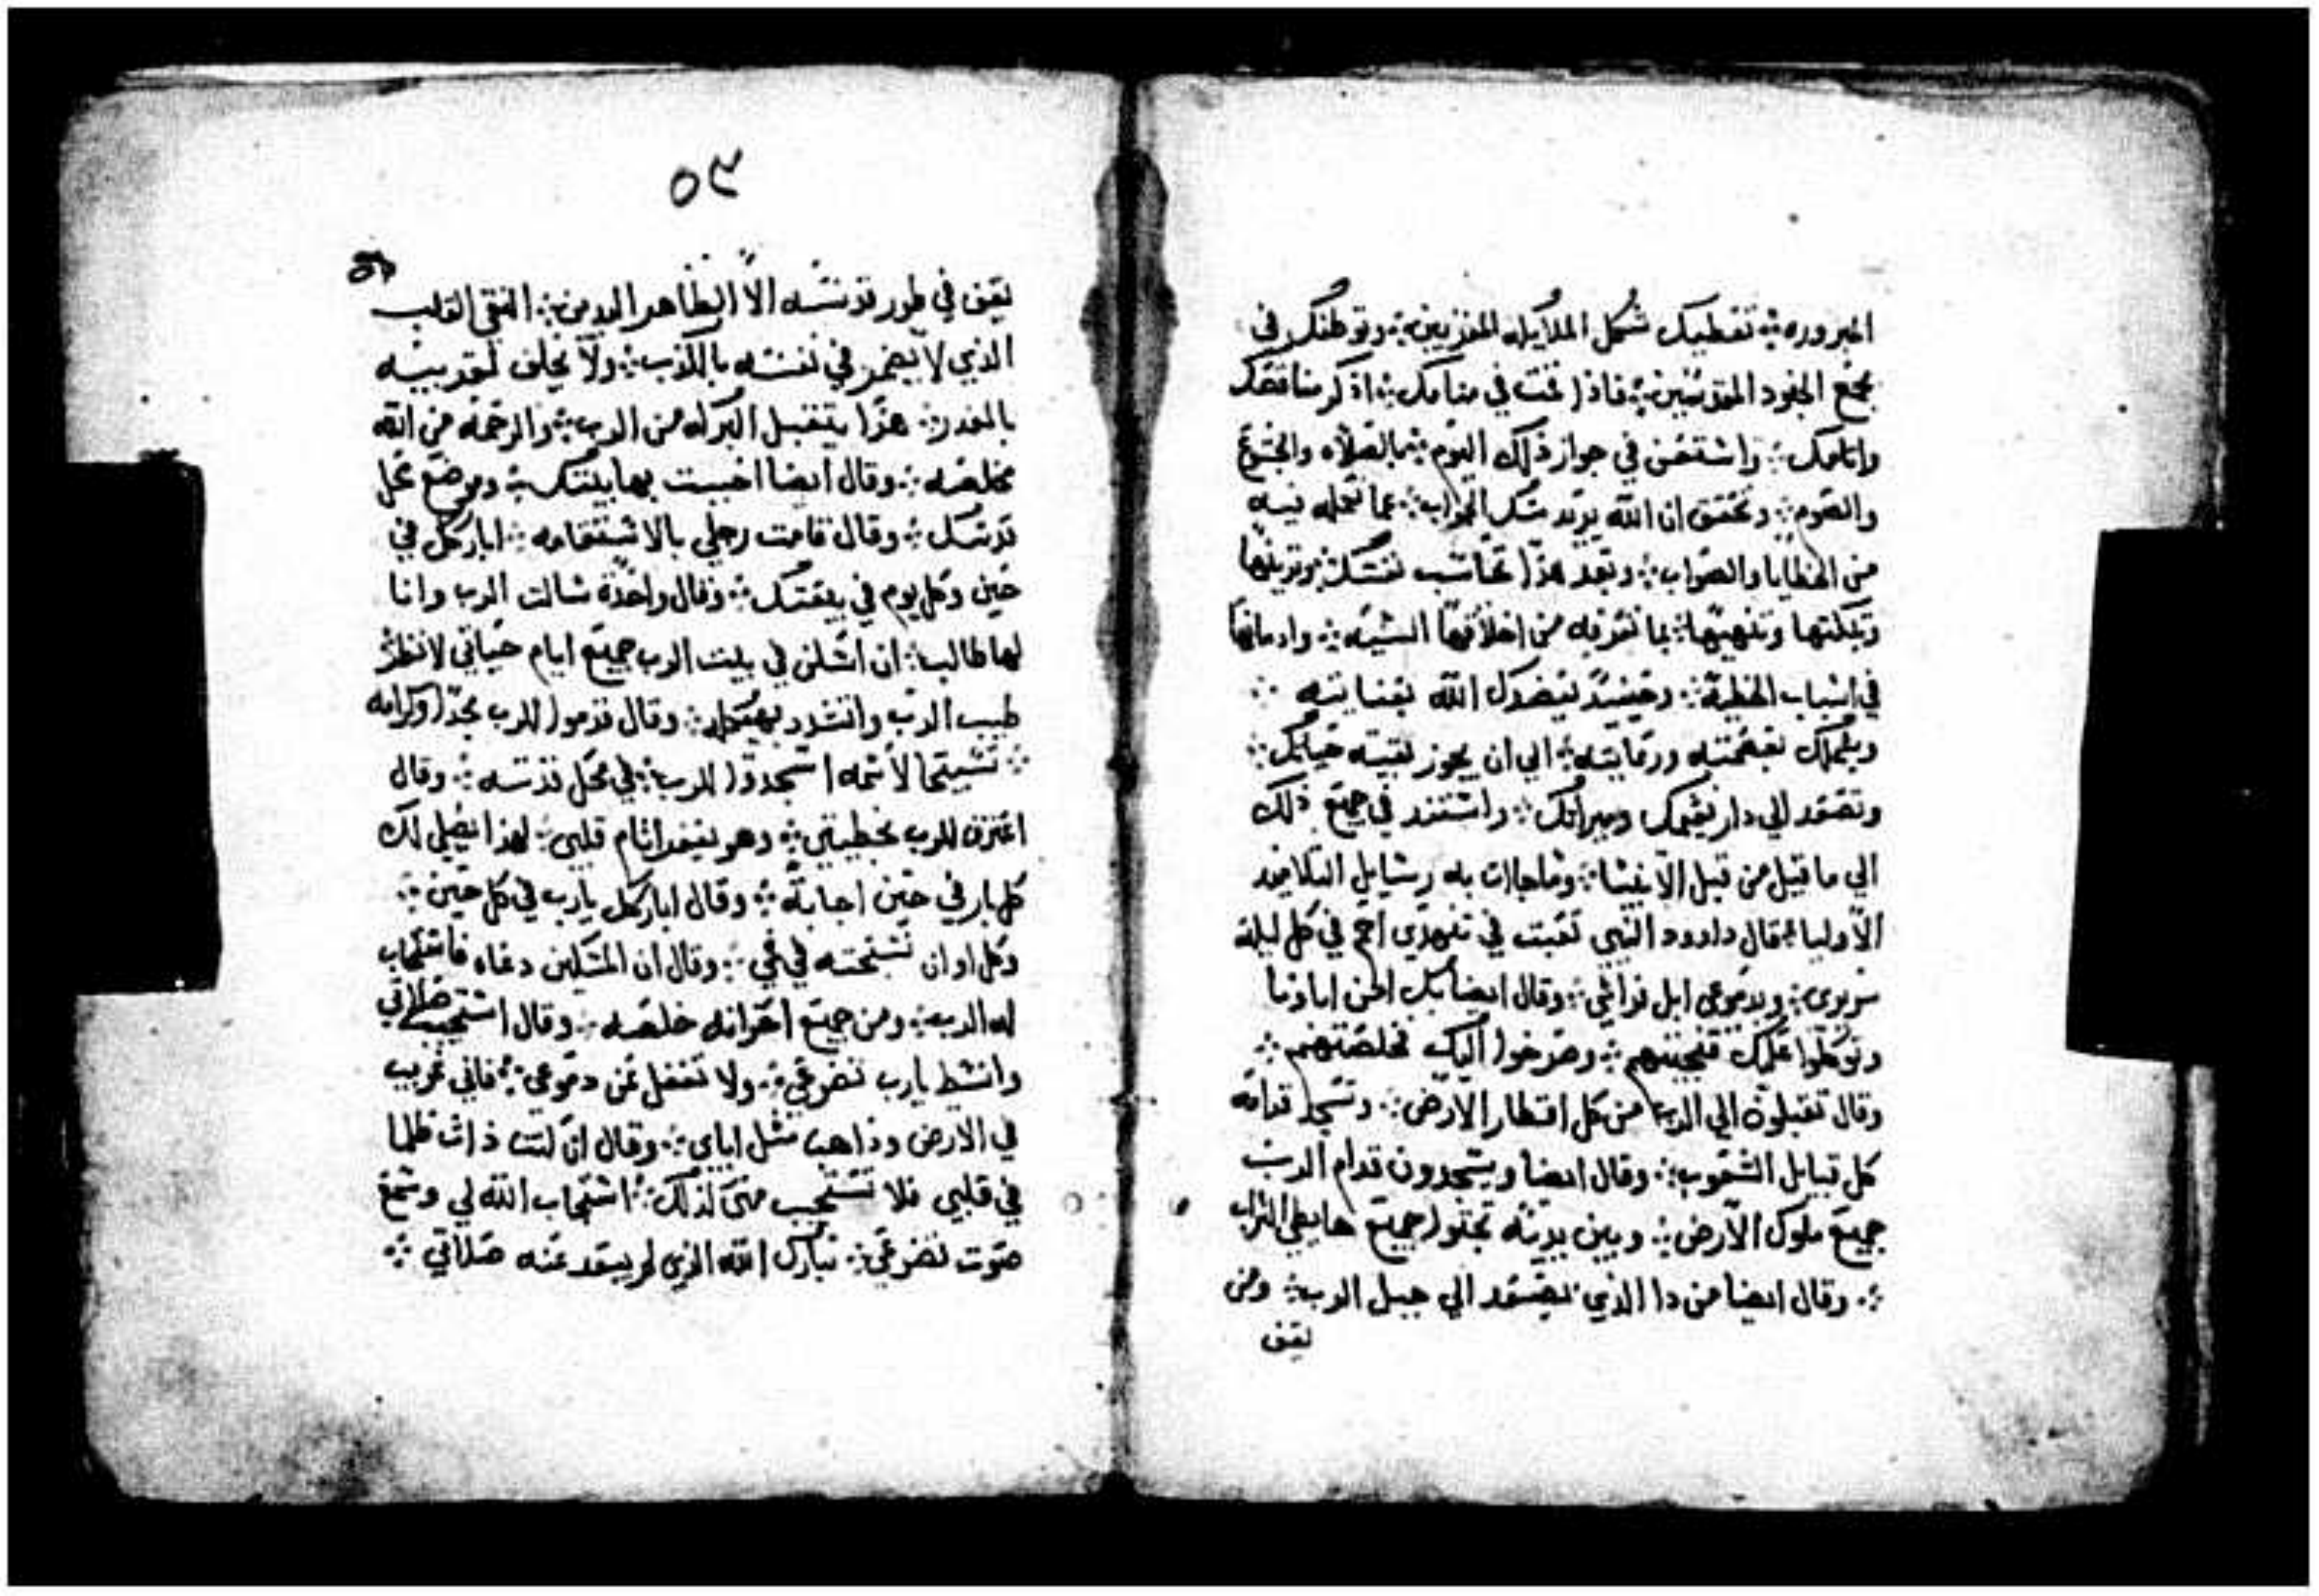 المبروره ⁘ تفطيك شكل الملايكه المقربين ⁘ وتوطنك في
مجمع الجنود المقدسين ⁘ فاذا نمت في منامك ⁘ اذكر مناقصك
واتامك ⁘ واستغفر في جواز ذلك اليوم ⁘ بالصلاه والخشوع
والصوم ⁘ وتحقق ان الله يريد منك الجواب ⁘ عما تعمله فيه
من الخطايا والصواب ⁘ وبعد هذا تحاسب نفسك ⁘
وتبكتها وتنهيها ⁘ بما تعرفه من اخلاقها السيئه ⁘ وادمانها
في اسباب الخطيه ⁘ وحينيد يعضدك الله بعنايته ⁘
ويشملك بعصمته ورعايته ⁘ الي ان يجوز بقيته حياتك ⁘
وتصعد الي دار نعيمك وميراتك ⁘ واستند في جميع ذلك
الي ما قيل من قبل الانبيا ⁘ وما جاات به رسايل التلاميد
الاوليا ⁘ قال داوود النبي تعبت في تنهدي احم في كل ليلة
سريري ⁘ وبدموعي ابل فراشي ⁘ وقال ايضا بك امن اباونا
وتوكلوا عليك فنجيتهم ⁘ وصرخوا اليك فخلصتهم ⁘
وقال تقبلون الي الرب من كل اقطار الارض ⁘ وتسجد قدامه
كل قبايل الشعوب ⁘ وقال ايضا ويسجدون قدام الرب
جميع ملوك الارض ⁘ وبين يديه تجتوا جميع هابطي التراب
⁘ وقال ايضا من دا الذي يصعد الي جبل الرب ⁘ ومن
يقف
٥٩
يقف في طور قدسه الا الطاهر اليدين ⁘ النقي القلب
الذي لا يضمر في نفسه بالكذب ⁘ ولا يحلف لقريبه
بالغدر ⁘ هذا يتقبل البركه من الرب ⁘ والرحمه من الله
مخلصه ⁘ وقال ايضا احببت بها بيتك ⁘ وموضع محل
قدسك ⁘ وقال قامت رجلي بالاستقامه ⁘ اباركك في
حين وكل يوم في بيعتك ⁘ وقال واحدة سالت الرب وانا
لها طالب ⁘ ان اسكن في بيت الرب جميع ايام حياتي لانظر
طيب الرب واتشدد بهيكله ⁘ وقال قدموا للرب مجدا وكرامه
⁘ تسبيحا لاسمه اسجدوا للرب ⁘ في محل قدسه ⁘ وقال
اعترف للرب بخطيتي ⁘ وهو يغفر اتام قلبي ⁘ لهذا يصلي لك
كل بار في حين اجابة ⁘ وقال اباركك يارب في كل حين ⁘
وكل اوان تسبحته في فمي ⁘ وقال ان المسكين دعاه فاستجاب
له الرب ⁘ ومن جميع احزانه خلصه ⁘ وقال استجيب صلاتي
وانشط يارب تضرعي ⁘ ولا تغفل عن دموعي ⁘ فاني غريب
في الارض وذاهب مثل اباي ⁘ وقال ان كنت ظلما
في قلبي فلا تستجيب مني لذلك ⁘ استجاب الله لي وسمع
صوت تضرعي ⁘ تبارك الله الذي لم يبعد عنه صلاتي ⁘